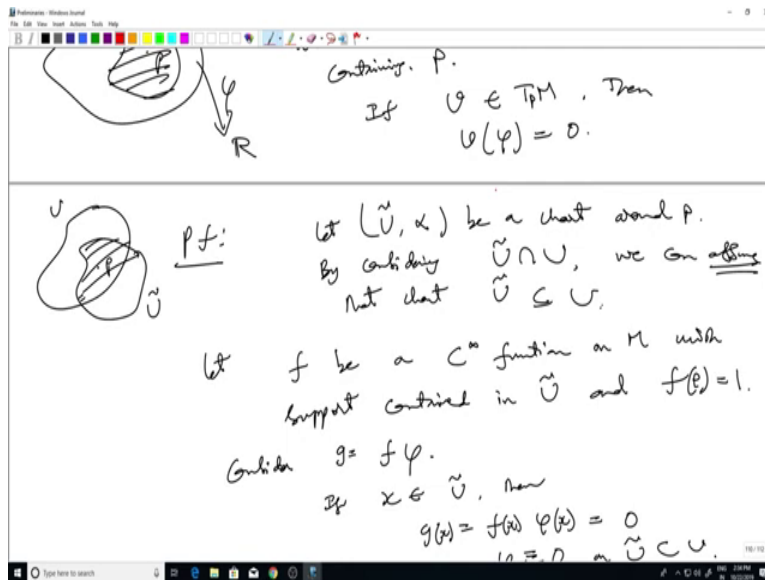 Preliminaries - Windows Journal
File Edit View Insert Actions Tools Help
B I
containing P.
P
φ
R
If v ∈ TpM, Then
v(φ) = 0.
U
P
Ũ
Pf:
Let (Ũ, α) be a chart around P.
By considering Ũ ∩ U, we can assume
that chart Ũ ⊆ U.
Let f be a C^∞ function on M with
support contained in Ũ and f(p) = 1.
Consider g = fφ.
If x ∈ Ũ, then
g(x) = f(x) φ(x) = 0
φ ≡ 0 on Ũ ⊂ U.
110 / 112
Type here to search
ENG
IN
2:34 PM
10/22/2019